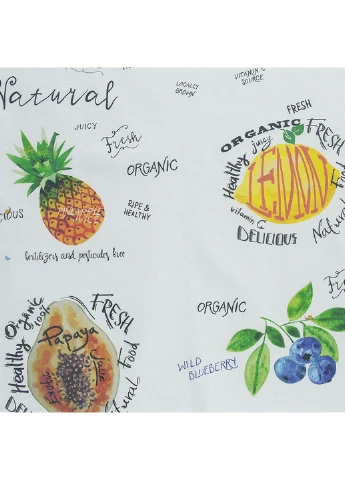 LOCALLY
GROWN
VITAMIN C
SOURCE
Natural
JUICY
Fresh
ORGANIC
RIPE &
HEALTHY
PINEAPPLE
fertilizers and pesticides free
FRESH
ORGANIC FRESH
Healthy juicy
LEMON
vitamin C
DELICIOUS
Natural Food
ORGANIC
WILD
BLUEBERRY
Healthy Organic
100%
FRESH
Papaya
Juice
Exotic
Natural Food